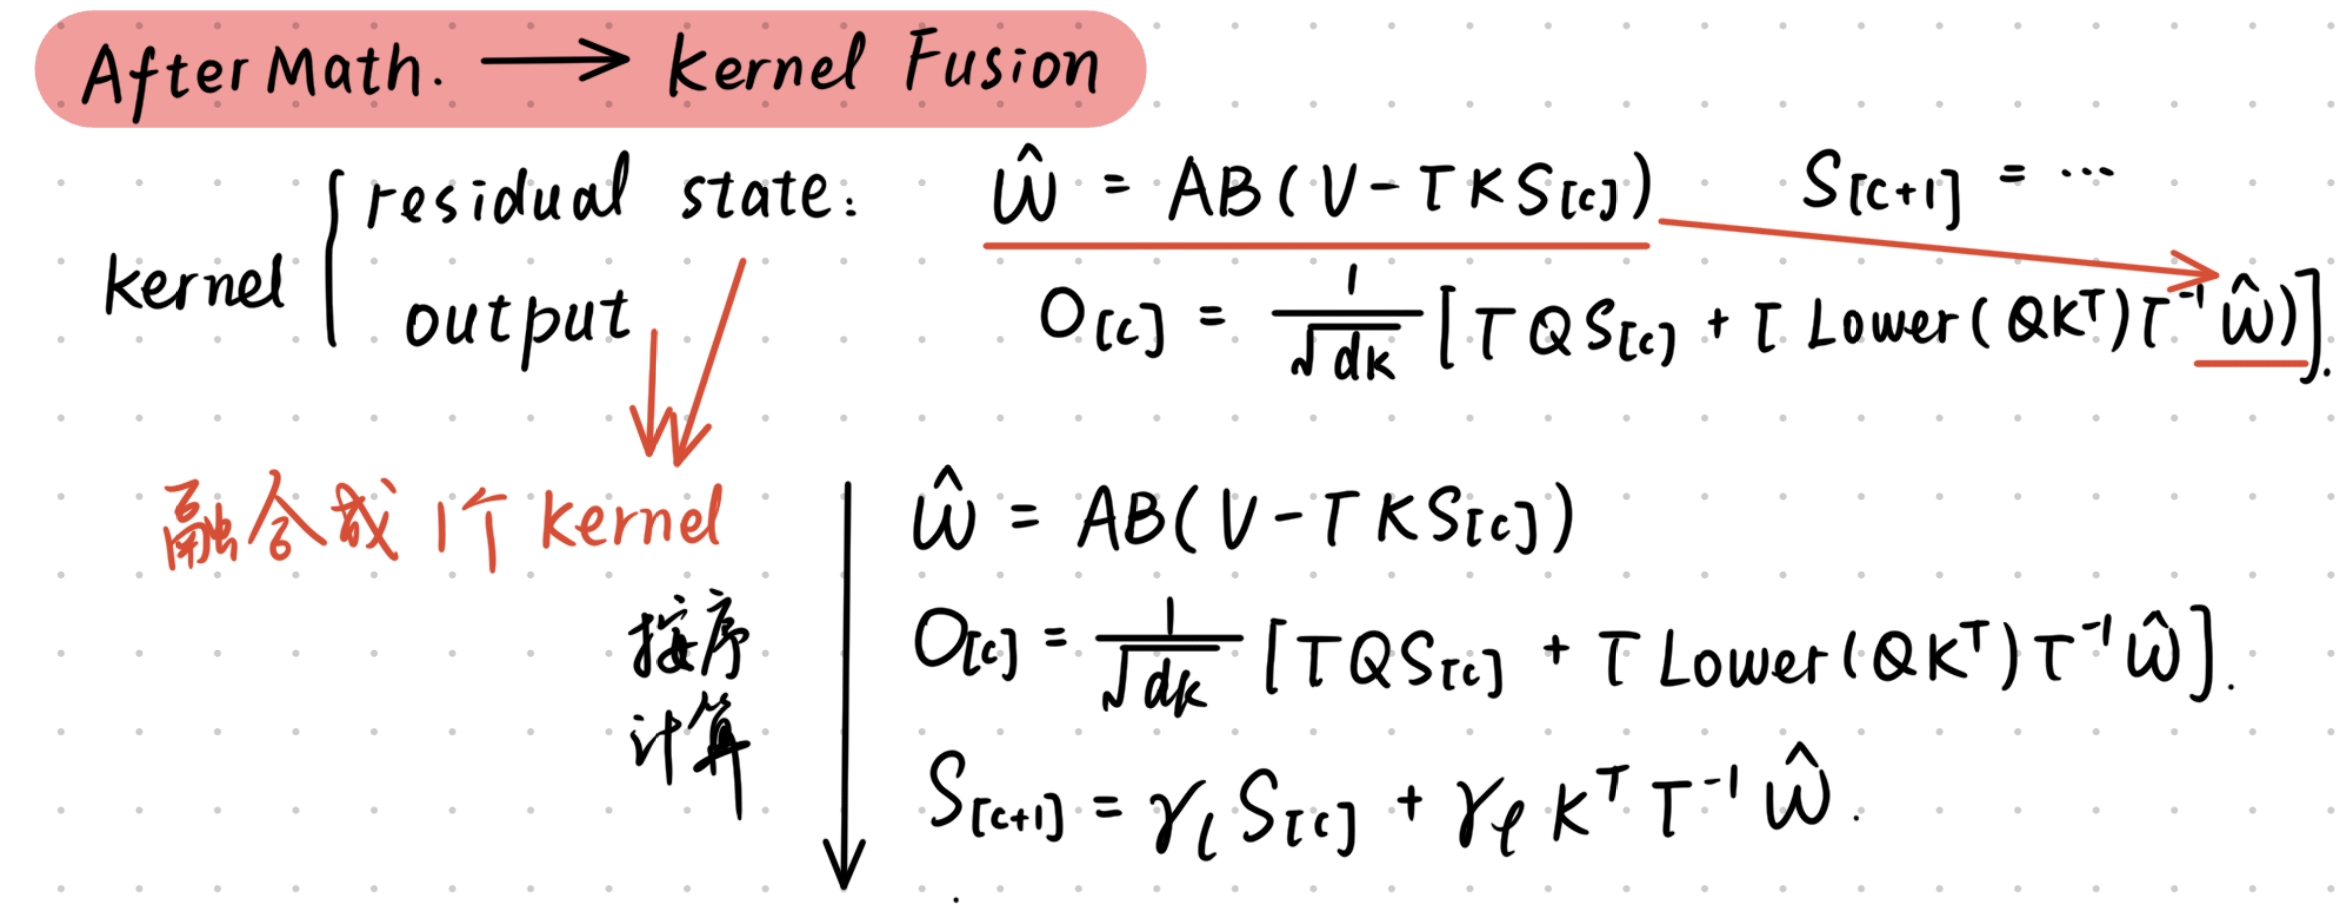 After Math. → Kernel Fusion
kernel { residual state: Ŵ = AB(V - TKS[c]) S[c+1] = ...
output O[c] = 1/√dk [TQS[c] + T Lower(QKᵀ)T⁻¹Ŵ)].
融合成1个 kernel
按序计算
Ŵ = AB(V - TKS[c])
O[c] = 1/√dk [TQS[c] + T Lower(QKᵀ)T⁻¹Ŵ].
S[c+1] = γ_l S[c] + γ_ℓ Kᵀ T⁻¹ Ŵ.